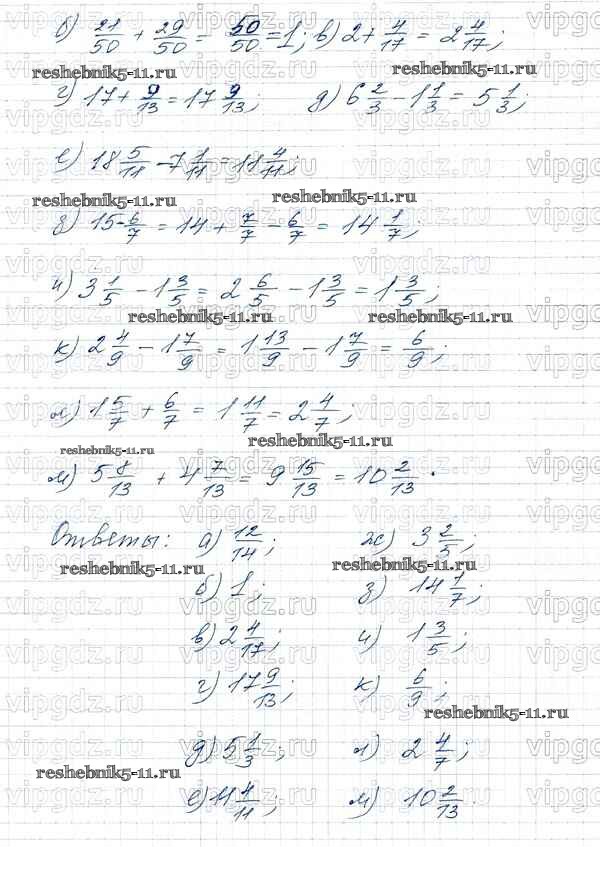 б) 21/50 + 29/50 = 50/50 = 1; в) 2 + 4/17 = 2 4/17;
reshebnik5-11.ru reshebnik5-11.ru
г) 17 + 9/13 = 17 9/13; д) 6 2/3 - 1 1/3 = 5 1/3;
е) 18 5/11 - 7 1/11 = 11 4/11;
reshebnik5-11.ru reshebnik5-11.ru
з) 15 - 6/7 = 14 + 7/7 - 6/7 = 14 1/7;
и) 3 1/5 - 1 3/5 = 2 6/5 - 1 3/5 = 1 3/5;
reshebnik5-11.ru reshebnik5-11.ru
к) 2 4/9 - 1 7/9 = 1 13/9 - 1 7/9 = 6/9;
л) 1 5/7 + 6/7 = 1 11/7 = 2 4/7;
reshebnik5-11.ru reshebnik5-11.ru
м) 5 8/13 + 4 7/13 = 9 15/13 = 10 2/13.
Ответы: а) 12/14; ж) 3 2/5;
reshebnik5-11.ru reshebnik5-11.ru
б) 1; з) 14 1/7;
в) 2 4/17; и) 1 3/5;
г) 17 9/13; к) 6/9;
reshebnik5-11.ru
д) 5 1/3; л) 2 4/7;
reshebnik5-11.ru
е) 11 4/11; м) 10 2/13.
vipgdz.ru